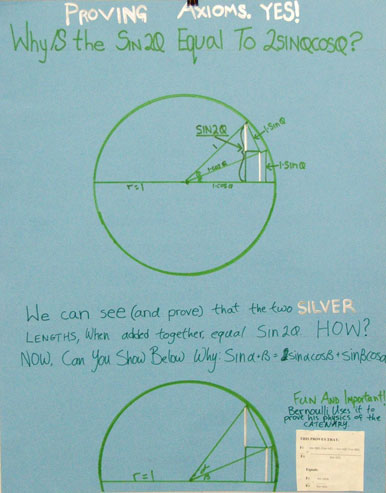 PROVING AXIOMS. YES!
Why IS the Sin2Q Equal To 2SINQCOSQ?
SIN2Q
1
1·SinQ
1·SinQ
r=1
1·cosQ
We can see (and prove) that the two SILVER
LENGTHS, When added together, equal Sin2Q. HOW?
NOW, Can You Show Below Why: Sinα+β = 2sinαcosβ + sinβcosα
FUN AND Important!
Bernoulli Uses it to
prove his physics of the
CATENARY.
r=1
α
β
THIS PROVES THAT:
Equals